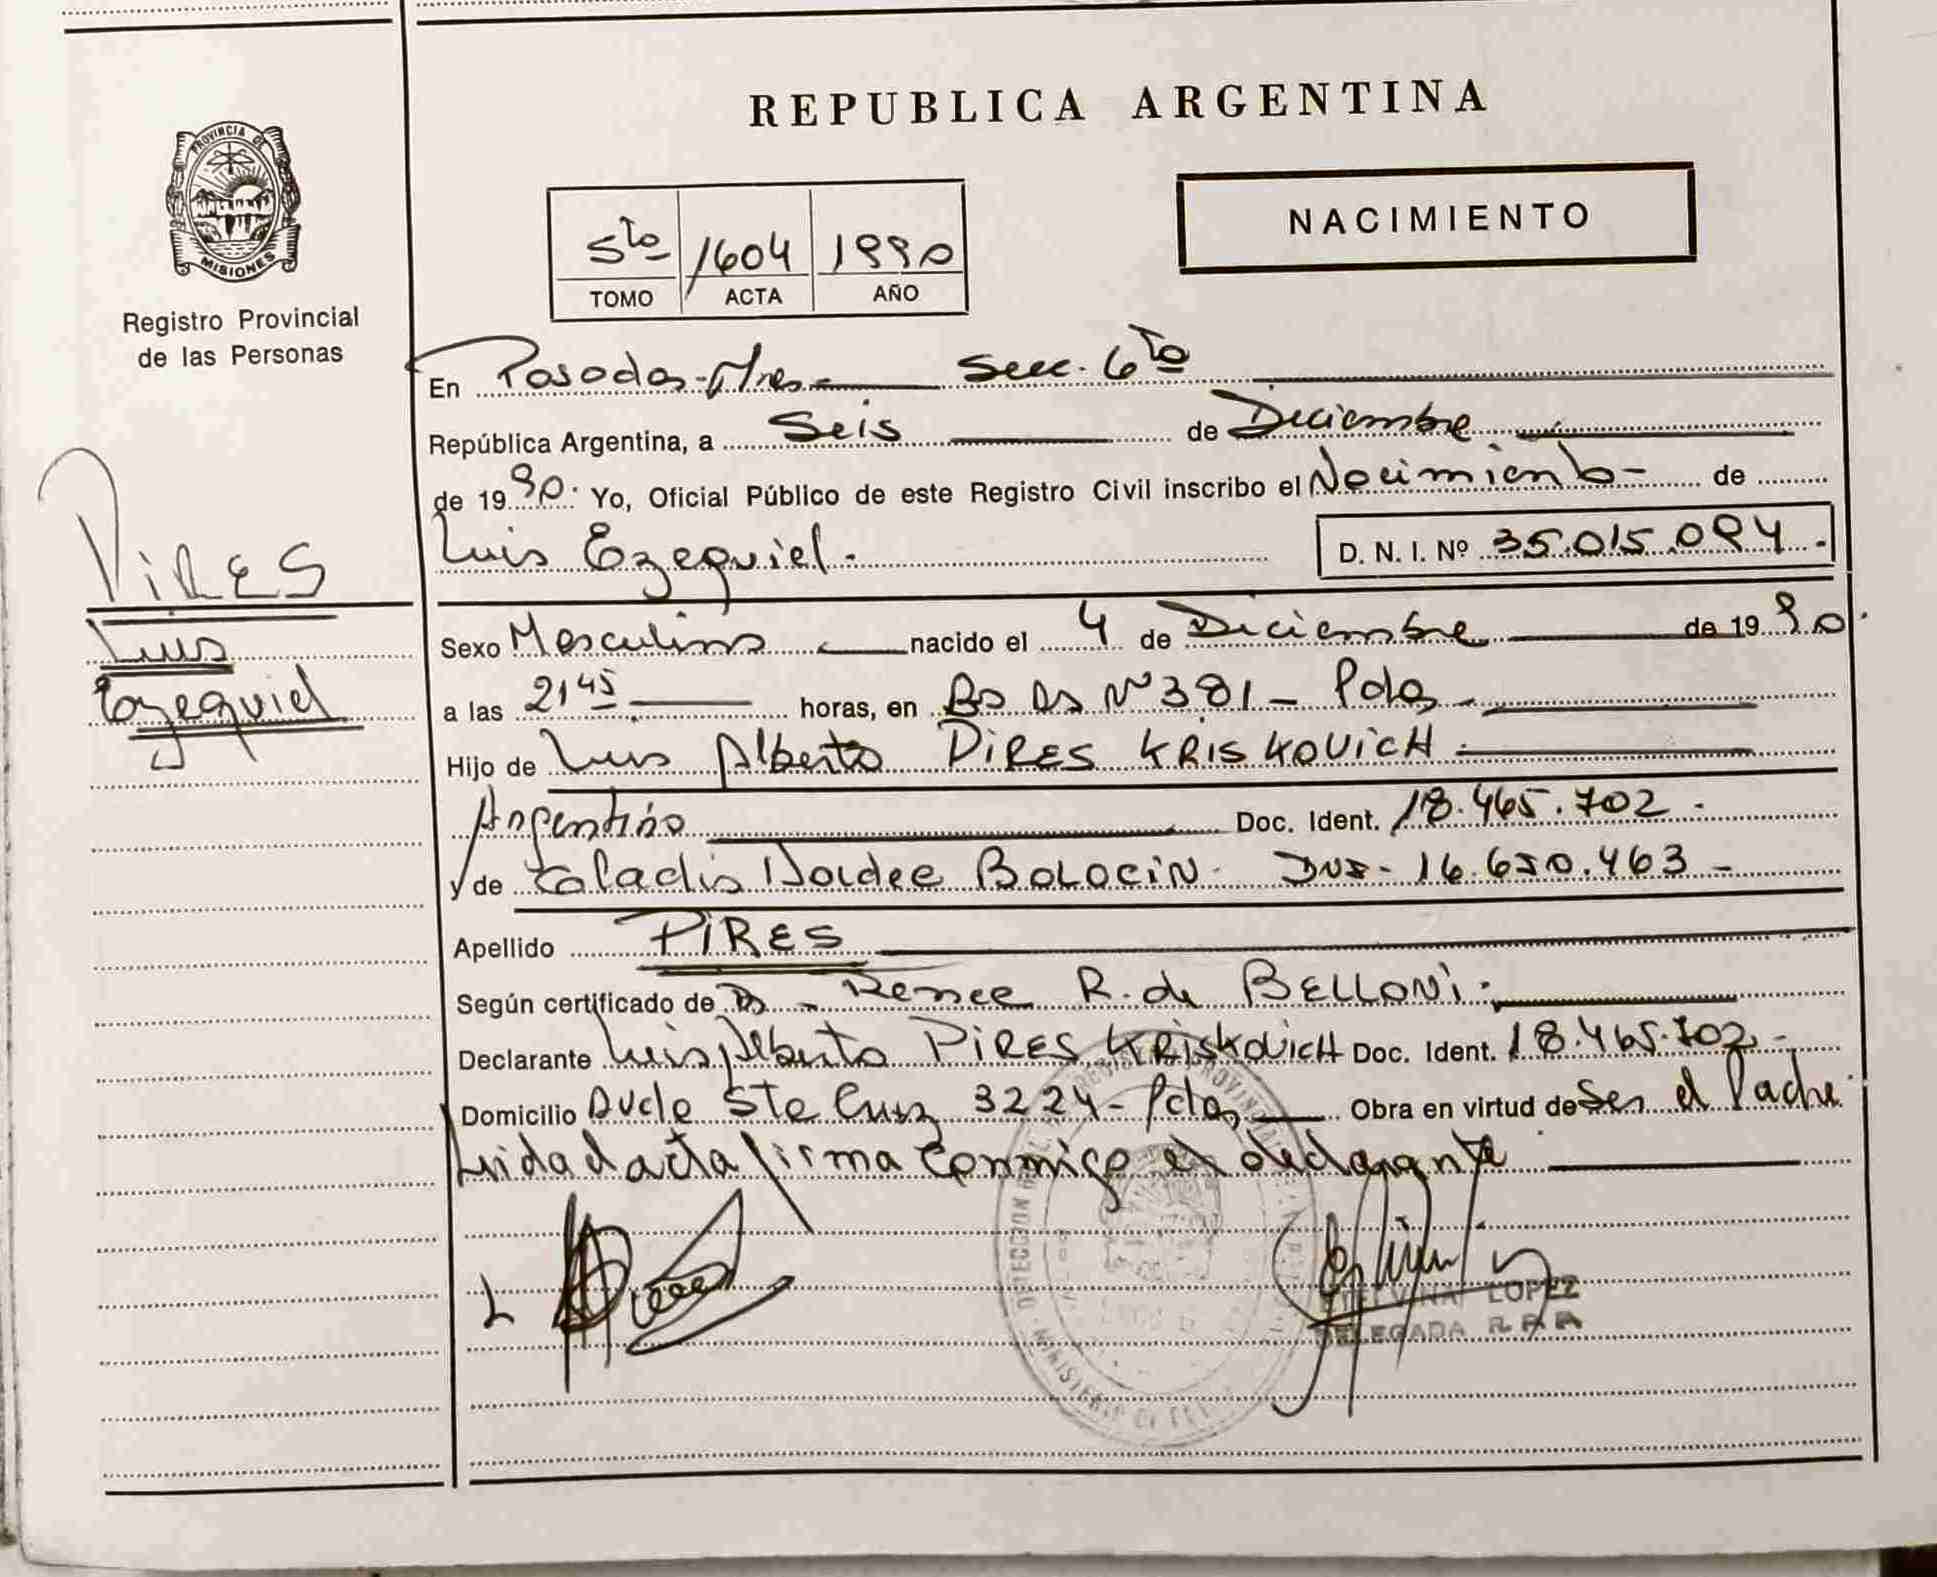 REPUBLICA ARGENTINA
PROVINCIA DE
MISIONES
Registro Provincial
de las Personas
NACIMIENTO
5to 1604 1990
TOMO ACTA AÑO
En Posadas-Mnes- Secc. 6ta
República Argentina, a Seis de Diciembre
de 1990. Yo, Oficial Público de este Registro Civil inscribo el Nacimiento- de
Luis Ezequiel.- D. N. I. Nº 35.015.094.-
PIRES
Luis
Ezequiel
Sexo Masculino nacido el 4 de Diciembre de 1990.
a las 21 45 horas, en Bs As Nº 381- Pdas
Hijo de Luis Alberto PIRES KRISKOVICH.-
Argentino Doc. Ident. 18.465.702.-
y de Haydee BOLOCIN. DNI- 16.650.463-
Apellido PIRES
Según certificado de Renee R. de BELLONI.-
Declarante Luis Alberto PIRES KRISKOVICH Doc. Ident. 18.465.702-
Domicilio Avda Sta Cruz 3224- Pdas Obra en virtud de Ser el Padre.
Leida el acta firma conmigo el declarante
ETELVINA LOPEZ
DELEGADA R.P.P.